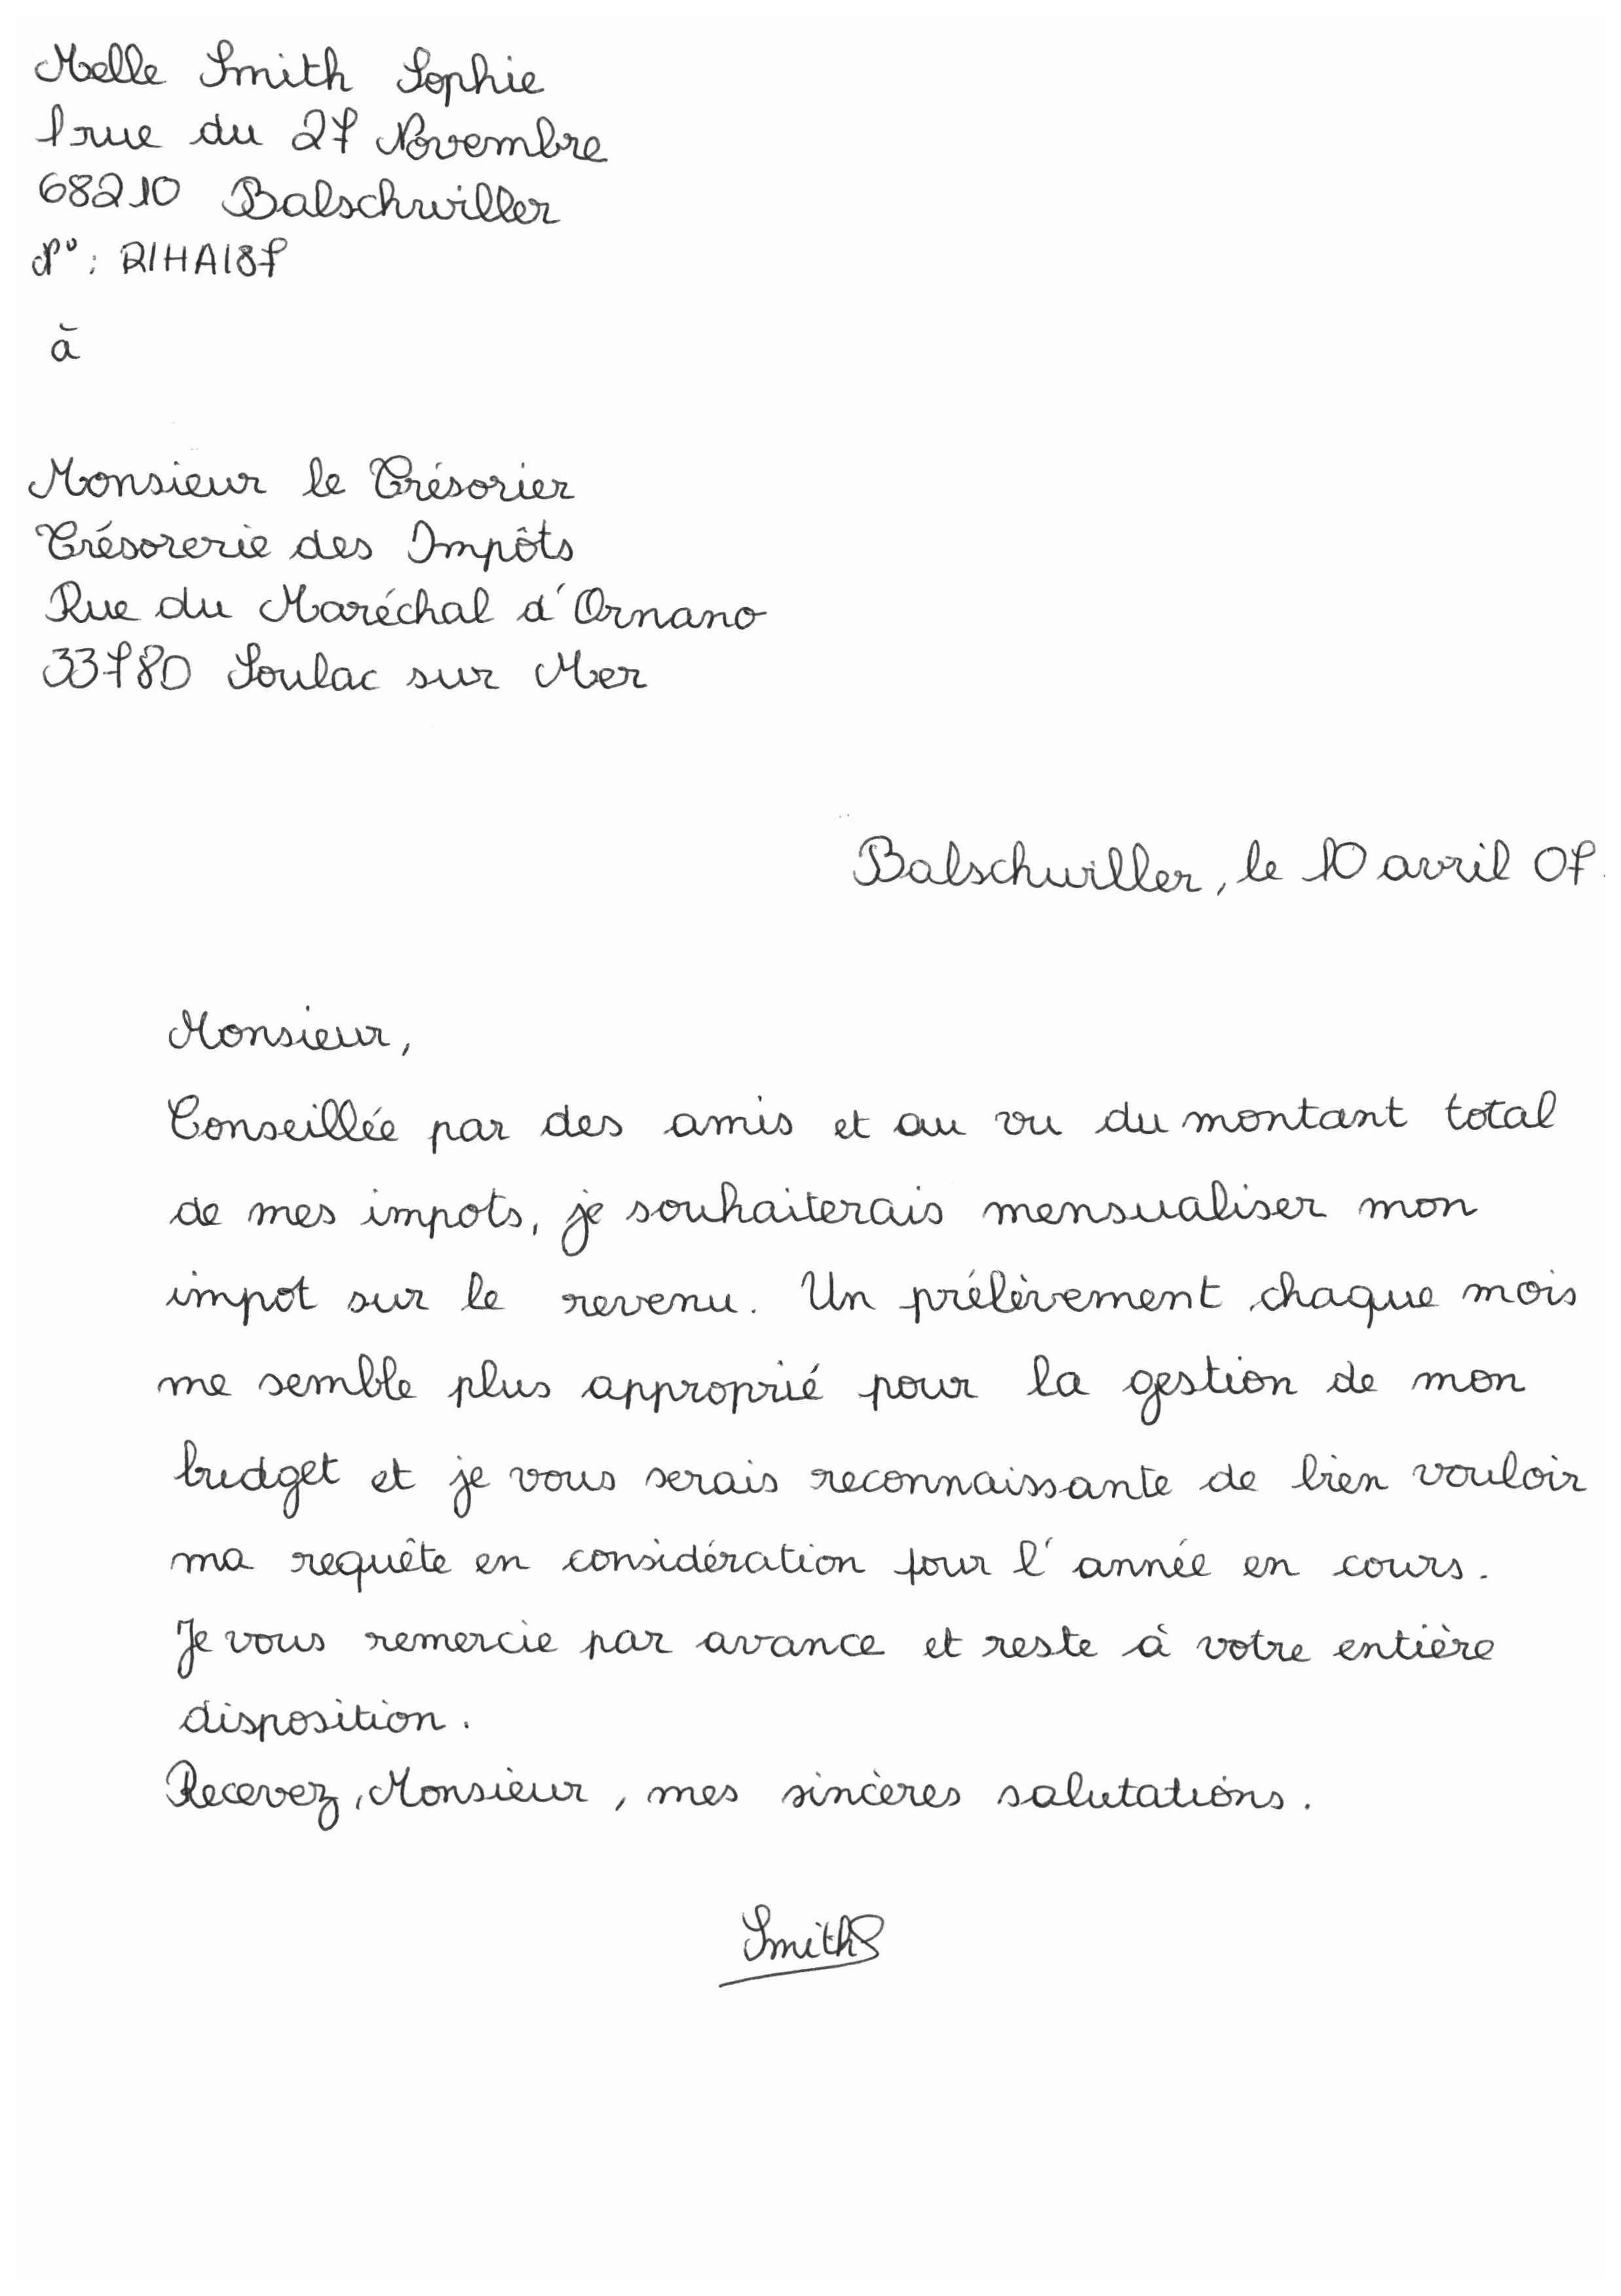 Melle Smith Sophie
1 rue du 27 Novembre
68210 Balschwiller
N° : RIHA187
à
Monsieur le Trésorier
Trésorerie des Impôts
Rue du Maréchal d'Ornano
33780 Soulac sur Mer
Balschwiller, le 10 avril 07.
Monsieur,
Conseillée par des amis et au vu du montant total
de mes impots, je souhaiterais mensualiser mon
impot sur le revenu. Un prélèvement chaque mois
me semble plus approprié pour la gestion de mon
budget et je vous serais reconnaissante de bien vouloir
ma requête en considération pour l'année en cours.
Je vous remercie par avance et reste à votre entière
disposition.
Recevez, Monsieur, mes sincères salutations.
SmithS